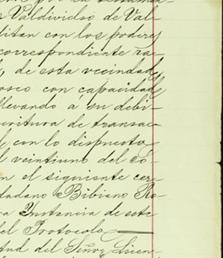 Valdivieso de Val
ditan con los poderes
correspondiente ra
de esta vecindad
osco con capacidad
llevando a su debi
critura de transac
e con lo dispuesto
l veintiuno del Có
n el siguiente cer
dadano Bibiano Ro
a Instancia de este
del Protocolo
tud del Señor Licen